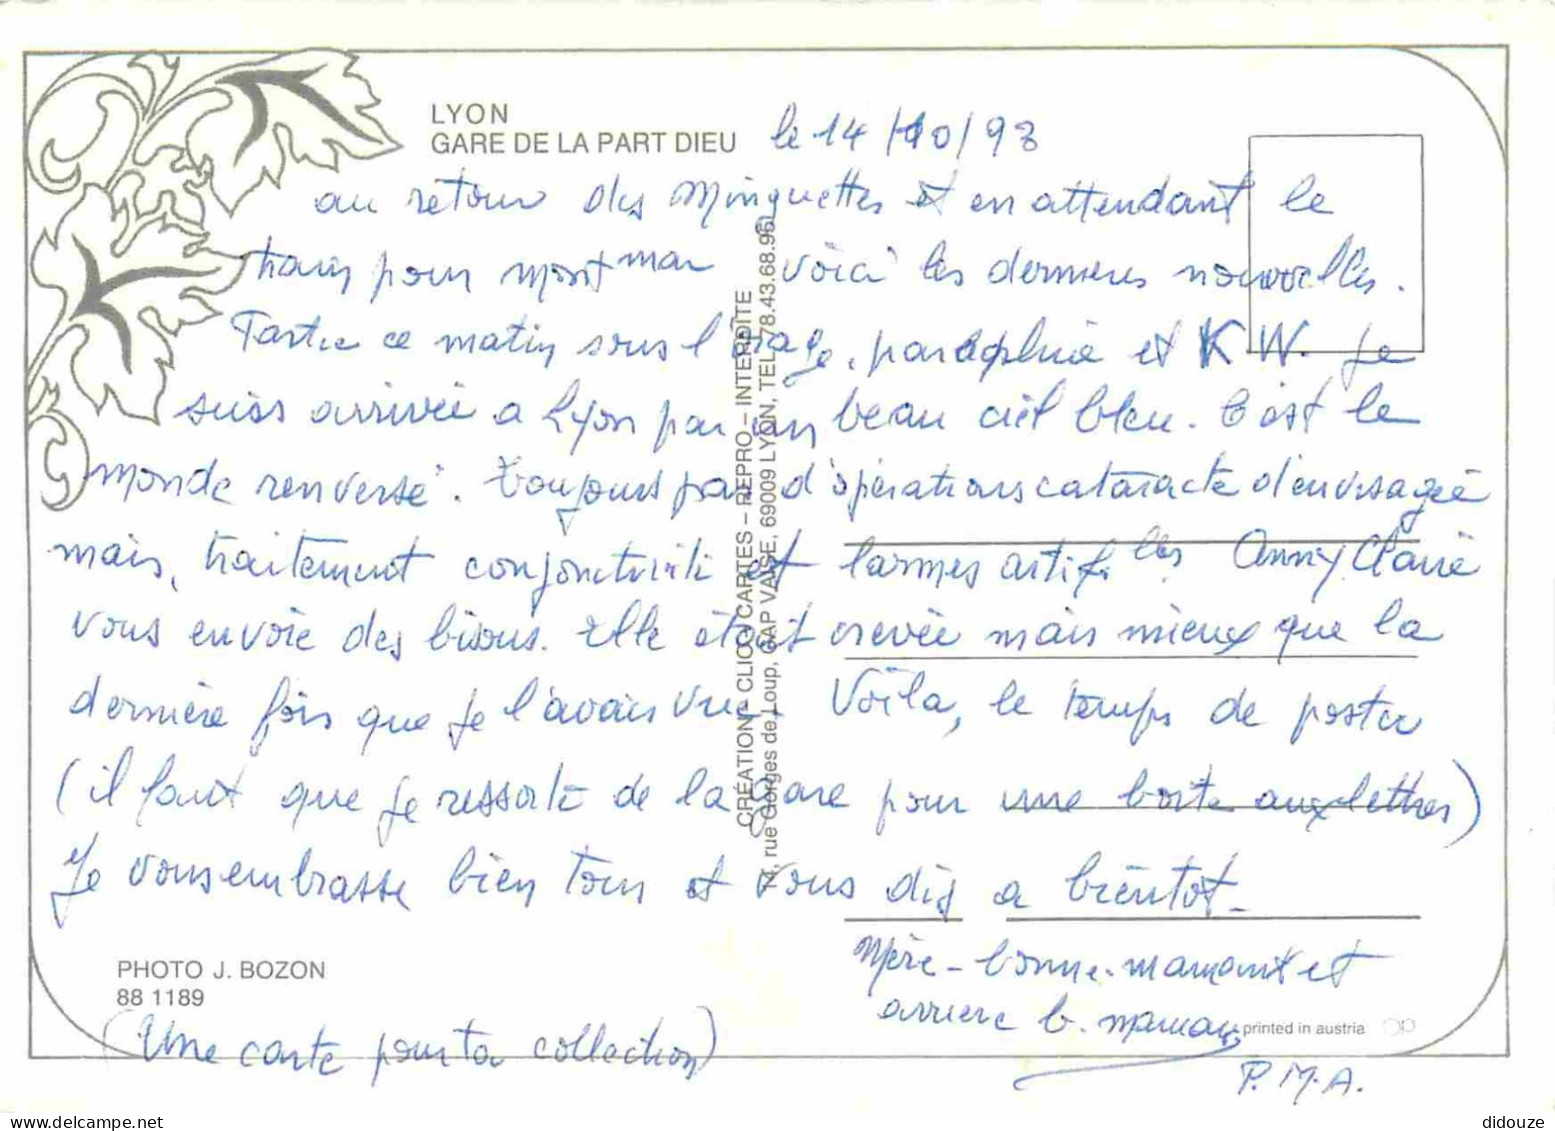 LYON
GARE DE LA PART DIEU le 14/10/93
au retour des Minguettes et en attendant le
train pour Montmar voici les dernieres nouvelles.
Partie ce matin sous l'orage, parapluie et KW. Je
suis arrivée a Lyon par un beau ciel bleu. C'est le
monde renversé. Toujours pas d'opérations cataracte d'envisagée
mais, traitement conjonctivite et larmes artif.lles Anny Claire
vous envoie des bisous. Elle était crevée mais mieux que la
dernière fois que je l'avais vue. Voila, le temps de poster
(il faut que je ressorte de la gare pour une boite aux lettres)
Je vous embrasse bien tous et vous dis a bientot_
Mère - bonne-maman et
arriere b. maman
P.M.A.
PHOTO J. BOZON
88 1189
(Une carte pour ta collection)
CRÉATION - CLIO CARTES - REPRO - INTERDITE
rue Gorges de Loup, CAP VAISE, 69009 LYON, TEL. 78.43.68.95
printed in austria
didouze